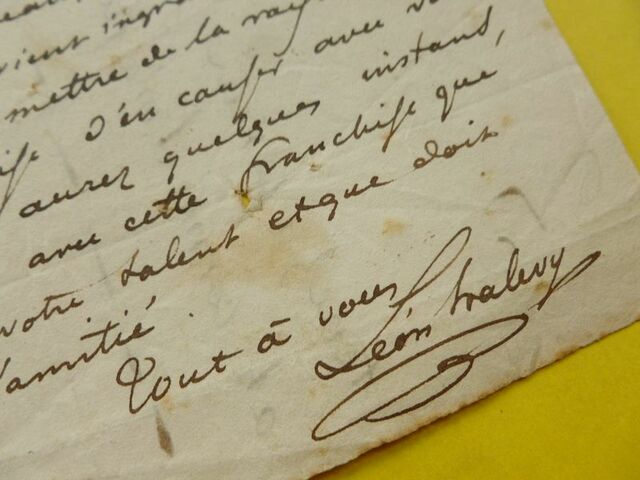 vient ingra
mettre de la ray
d'en causer avec v
aurez quelques instans,
avec cette franchise que
votre talent et que doit
l'amitié.
Tout à vous
Léon halevy